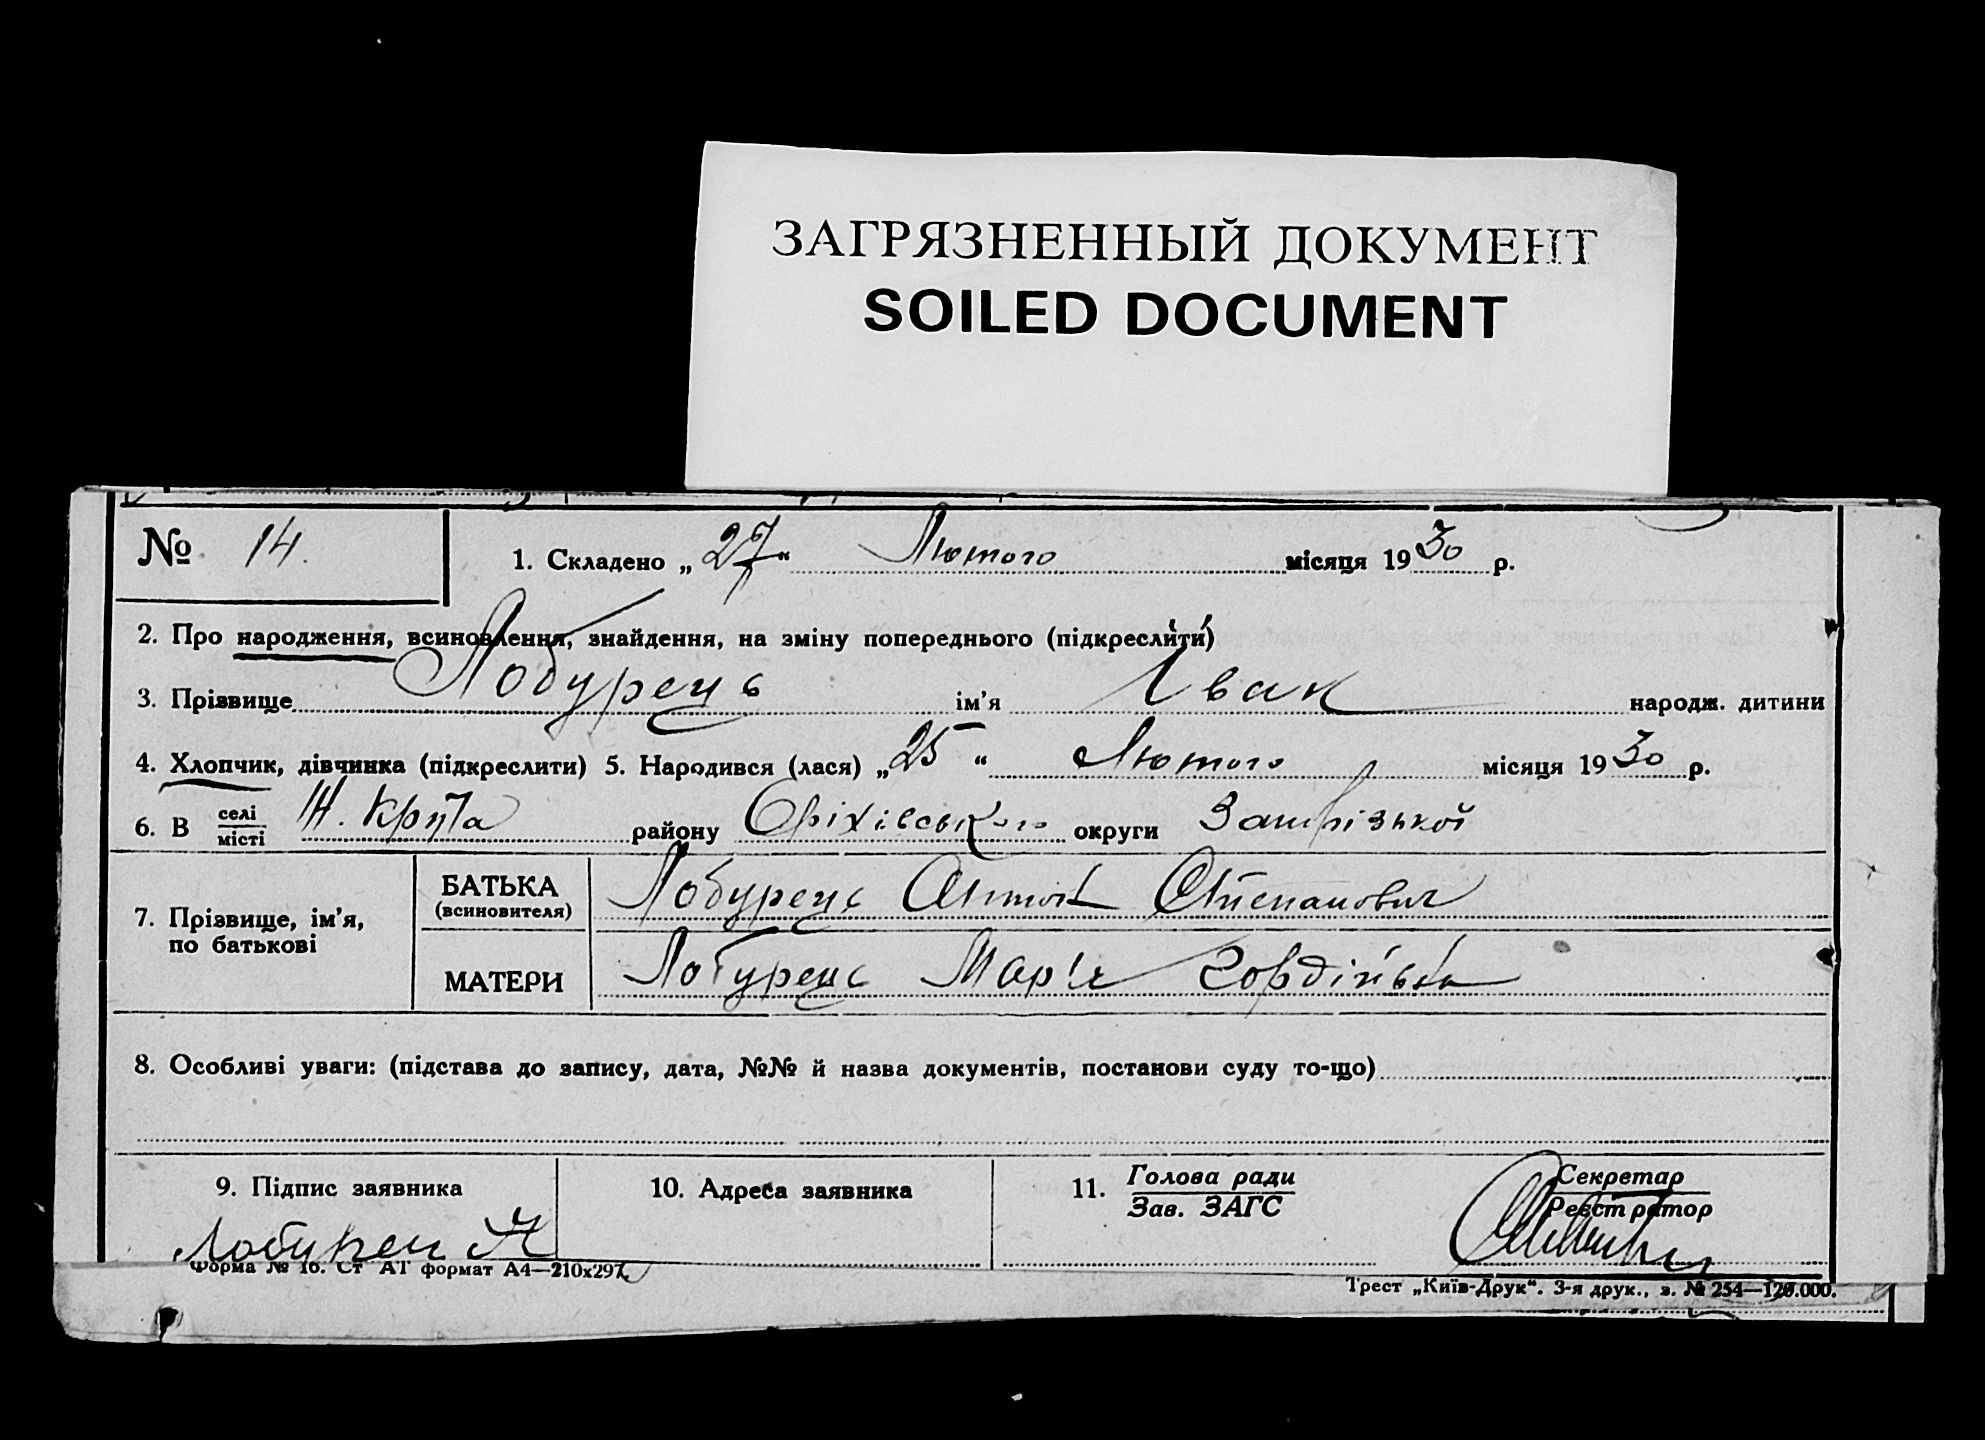 ЗАГРЯЗНЕННЫЙ ДОКУМЕНТ
SOILED DOCUMENT
№ 14.
1. Складено „27“ Лютого місяця 1930 р.
2. Про народження, всиновлення, знайдення, на зміну попереднього (підкреслити)
3. Прізвище Лобурець ім’я Іван народж. дитини
4. Хлопчик, дівчинка (підкреслити) 5. Народився (лася) „25“ Лютого місяця 1930 р.
6. В селі місті району Оріхівського округи Запорізької
7. Прізвище, ім’я, по батькові
БАТЬКА (всиновителя) Лобурець Антон Степанович
МАТЕРИ Лобурець Мар'я Гордіївна
8. Особливі уваги: (підстава до запису, дата, №№ й назва документів, постанови суду то-що)
9. Підпис заявника
10. Адреса заявника
11. Голова ради
Зав. ЗАГС
Секретар
Реєстратор
Лобурец А
Форма № 16. Ст АТ формат А4—210х297
Трест „Київ-Друк“. 3-я друк., з. № 254—120.000.